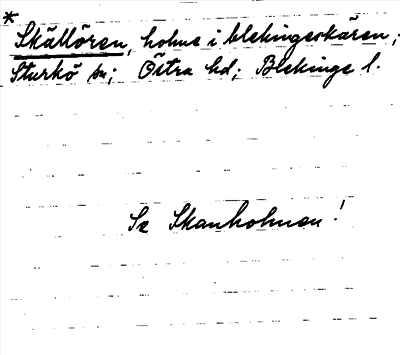 * Skällören, holme i blekingeskären;
Sturkö sn; Östra hd; Blekinge l.
Se Skanholmen!